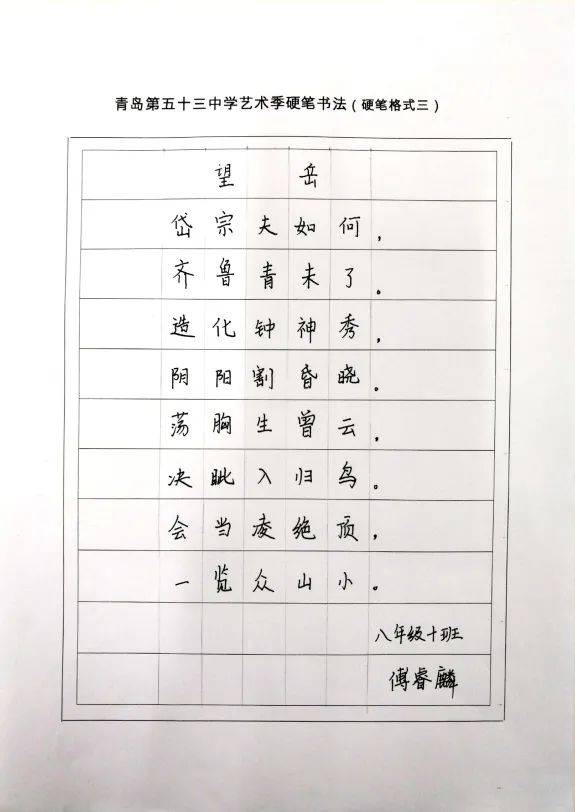 青岛第五十三中学艺术季硬笔书法（硬笔格式三）
望岳
岱宗夫如何，
齐鲁青未了。
造化钟神秀，
阴阳割昏晓。
荡胸生曾云，
决眦入归鸟。
会当凌绝顶，
一览众山小。
八年级十班
傅睿麟